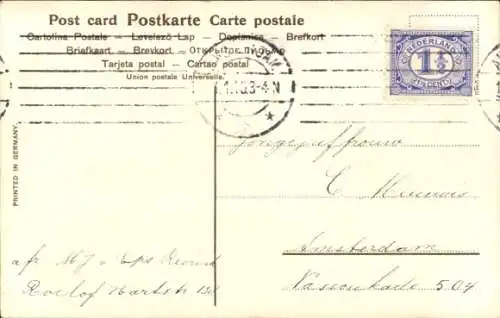 Post card Postkarte Carte postale
Cartolina Postale — Levelező Lap — Dopisnica — Brefkort
Briefkaart — Brevkort — ОТКРЫТОЕ ПИСЬМО
Tarjeta postal — Cartao postal
Union postale Universelle.
NEDERLAND
1½
3-4 N
PRINTED IN GERMANY.
Jongejuffrouw
C
Amsterdam
504
afz
Roelof Hartstr